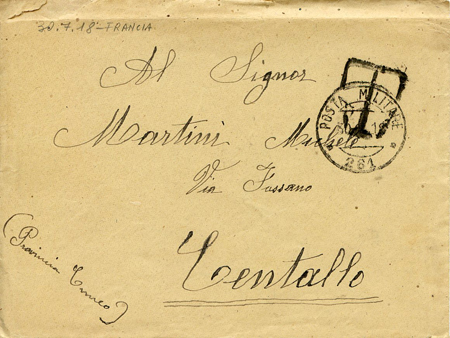 30.7.18 - FRANCIA
Al Signor
Martini Michele
Via Fossano
Centallo
(Provincia Cuneo)
POSTA MILITARE
261
T